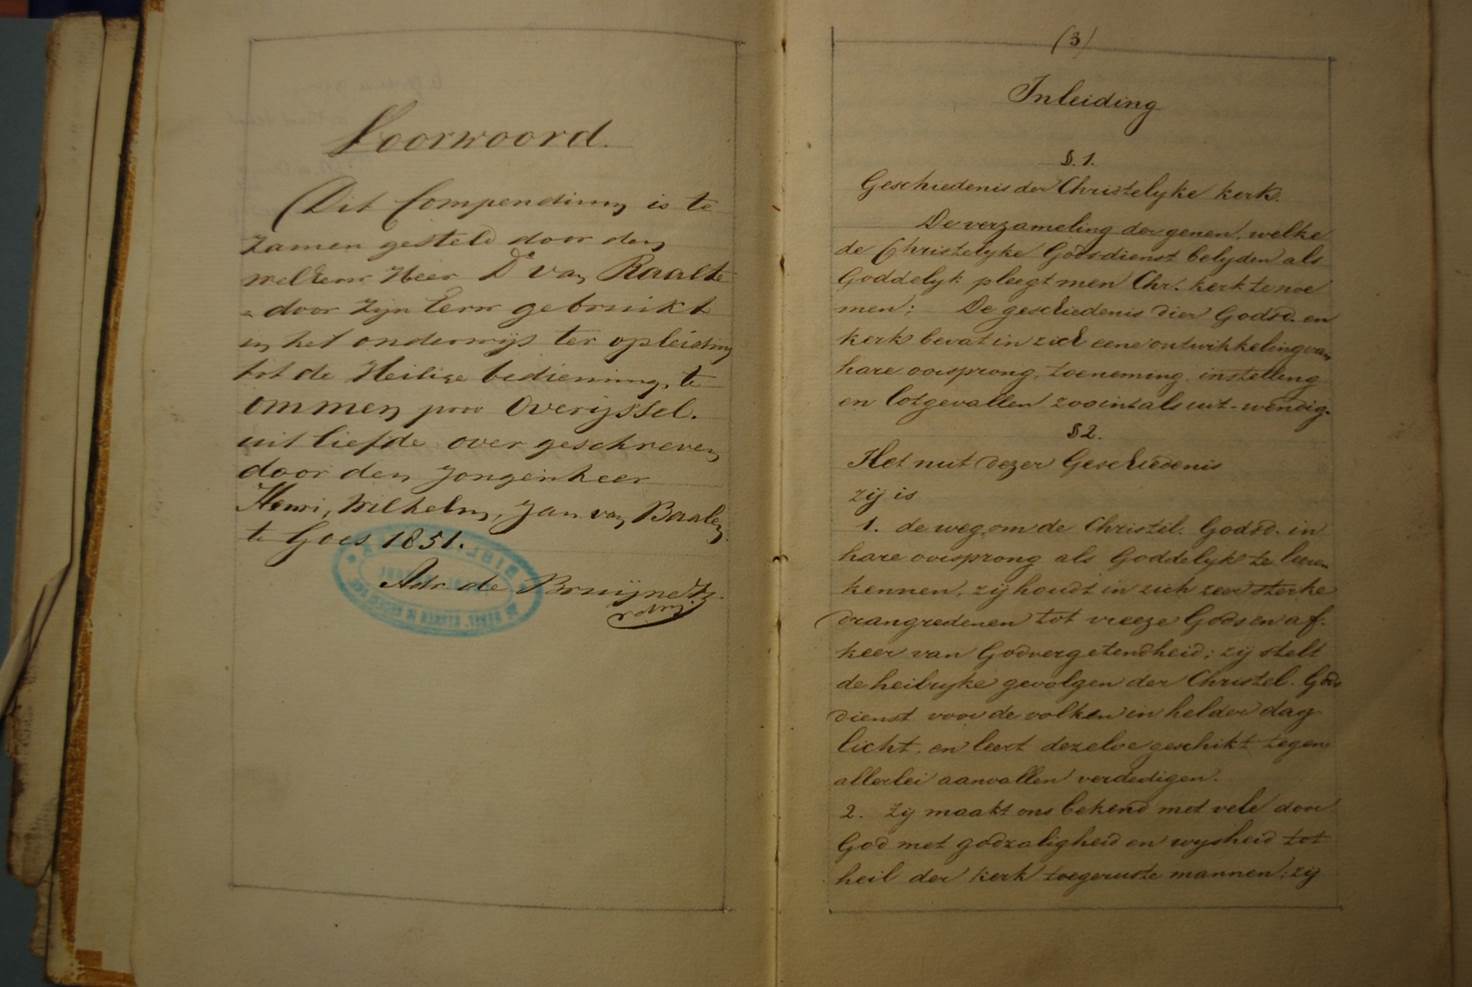 Voorwoord.
Dit Compendium is te
zamen gesteld door den
welEerw Heer Ds van Raalte
door zijn Eerw gebruikt
in het onderwijs ter opleiding
tot de Heilige bediening, te
Ommen prov Overijssel.
uit liefde over geschreven
door den Jongenheer
Henri, Wilhelm, Jan van Baalen
te Goes 1851.
Adr de Bruijne Iz.
(3)
Inleiding
§. 1.
Geschiedenis der Christelyke kerk.
De verzameling dergenen, welke
de Christelyke Godsdienst belyden als
Goddelyk pleegt men Chr. kerk te noe
men; De geschiedenis dier Godsd. en
kerk bevat in zich eene ontwikkeling van
hare oorsprong, toeneming, instelling
en lotgevallen zoo int als uit-wendig.
§ 2.
Het nut dezer Geschiedenis
zij is
1. de weg, om de Christel. Godsd. in
hare oorsprong als Goddelyk te leeren
kennen, zij houdt in zich zeer sterke
drangredenen tot vreeze Gods en af-
keer van Godvergetendheid; zij stelt
de heilryke gevolgen der Christel. Gods
dienst voor de volken in helder dag
licht, en leert dezelve geschikt tegen
allerlei aanvallen verdedigen.
2. Zij maakt ons bekend met vele door
God met godzaligheid en wysheid tot
heil der kerk toegeruste mannen; zij